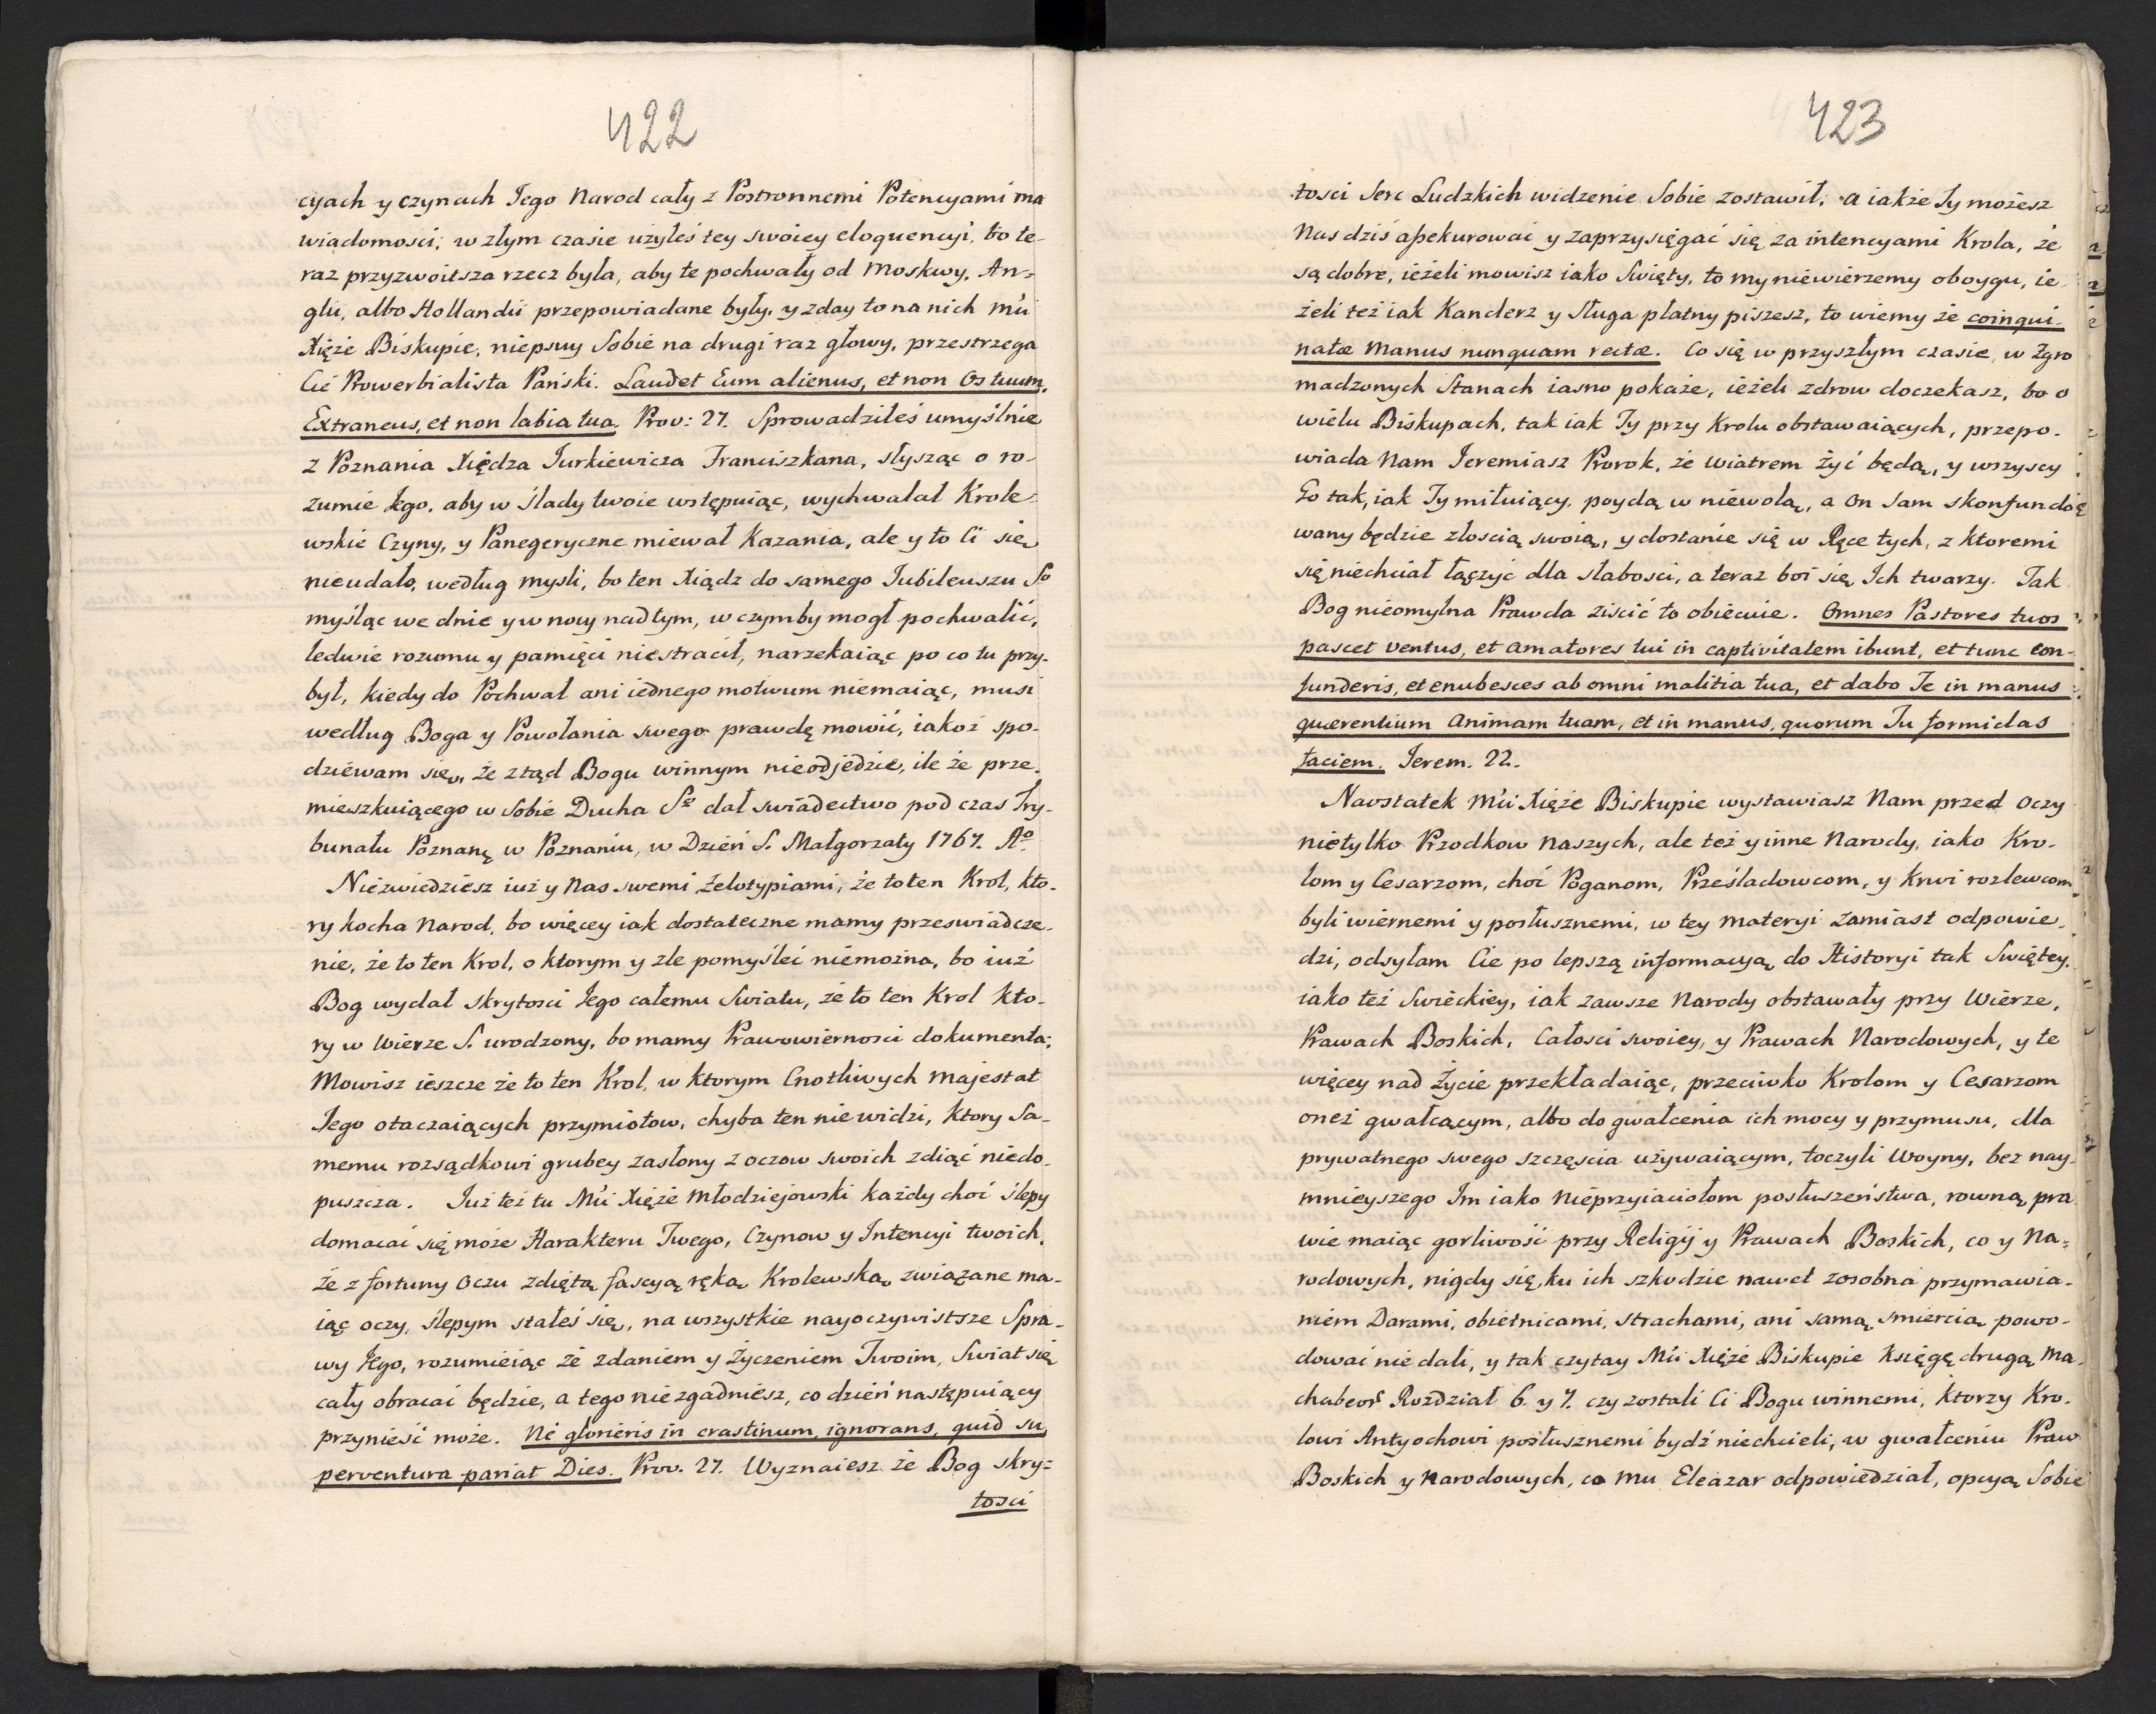 422
cyach y czynach Jego Narod cały z Postronnemi Potencyami ma
wiadomosci; w złym czasie użyłeś tey swoiey eloquencyi, bo te-
raz przyzwoitsza rzecz była, aby te pochwały od Moskwy, An-
glii, albo Hollandii przepowiadane były, y zday to na nich Mći
Xięże Biskupie, niepsuy Sobie na drugi raz głowy, przestrzega
Cię Prowerbialista Pański. Laudet Eum alienus, et non Os tuum,
Extraneus, et non labia tua. Prov: 27. Sprowadziłeś umyślnie
z Poznania Xiędza Jurkiewicza Franciszkana, słysząc o ro-
zumie Jego, aby w ślady twoie wstępuiąc, wychwalał Krole-
wskie Czyny, y Panegeryczne miewał Kazania, ale y to Ci się
nieudało, według mysli, bo ten Xiądz do samego Jubileuszu Sº
myśląc we dnie y w nocy nad tym, w czymby mogł pochwalić,
ledwie rozumu y pamięci niestracił, narzekaiąc po co tu przy-
był, kiedy do Pochwał ani iednego motivum niemaiąc, musi
według Boga y Powołania swego prawdę mowić, iakoż spo-
dziéwam się, że ztąd Bogu winnym nieodjedzie, ile że prze-
mieszkuiącego w Sobie Ducha Sº dał swiadectwo pod czas Try-
bunału Poznanę w Poznaniu, w Dzień S. Małgorzaty 1767. Aº
Niezwiedziesz iuż y Nas swemi żelotypiami, że to ten Krol, kto-
ry kocha Narod, bo więcey iak dostateczne mamy przeswiadcze-
nie, że to ten Krol, o ktorym y zle pomyśleć niemożna, bo iuż
Bog wydał skrytosci Jego całemu Swiatu, że to ten Krol kto-
ry w Wierze S. urodzony, bo mamy Prawowiernosci dokumenta;
Mowisz ieszcze że to ten Krol, w ktorym Cnotliwych Majestat
Jego otaczaiących przymiotow, chyba ten nie widzi, ktory Sa-
memu rozsądkowi grubey zasłony z oczow swoich zdiąć niedo-
puszcza. Już też tu Mći Xięże Młodziejowski każdy choć ślepy
domacać się może Harakteru Twego, Czynow y Intencyi twoich,
że z fortuny Oczu zdiętą fascyą ręką Krolewską związane ma-
iąc oczy, ślepym stałeś się, na wszystkie nayoczywistsze Spra-
wy Jego, rozumieiąc że zdaniem y życzeniem Twoim, Swiat się
cały obracać będzie, a tego nie zgadniesz, co dzień następuiący
przynieść może. Ne glorieris in crastinum, ignorans, quid su
perventura pariat Dies. Prov. 27. Wyznaiesz że Bog skry-
tosci
423
tosci Serc Ludzkich widzenie Sobie zostawił; a iakże Ty możesz
Nas dziś assekurować y zaprzysięgać się za intencyami Krola, że
są dobre, ieżeli mowisz iako Swięty, to my niewierzemy oboygu, ie-
żeli też iak Kanclerz y Sługa płatny piszesz, to wiemy że coinqui-
natæ Manus nunquam rectæ. Co się w przyszłym czasie, w Zgro
madzonych Stanach iasno pokaże, ieżeli zdrow doczekasz, bo o
wielu Biskupach, tak iak Ty przy Krolu obstawaiących, przepo-
wiada Nam Jeremiasz Prorok, że wiatrem żyć będą, y wszyscy
Go tak, iak Ty miłuiący, poydą w niewolą, a On Sam skonfundo
wany będzie złoscią swoią, y dostanie się w Ręce tych, z ktoremi
się niechciał łączyć dla słabosci, a teraz boi się Ich twarzy. Tak
Bog nieomylna Prawda ziscić to obiecuie. Omnes Pastores tuos
pascet ventus, et Amatores tui in captivitatem ibunt, et tunc con-
funderis, et erubesces ab omni malitia tua, et dabo Te in manus
quærentium Animam tuam, et in manus, quorum Tu formidas
faciem. Jerem. 22.
Naostatek Mći Xięże Biskupie wystawiasz Nam przed Oczy
nietylko Przodkow Naszych, ale też y inne Narody, iako Kro-
lom y Cesarzom, choć Poganom, Prześladowcom, y Krwi rozlewcom
byli wiernemi y posłusznemi, w tey Materyi zamiast odpowie-
dzi, odsyłam Cie po lepszą informacyą do Historyi tak Swiętey,
iako też Swieckiey, iak zawsze Narody obstawały przy Wierze,
Prawach Boskich, Całosci swoiey, y Prawach Narodowych, y te
więcey nad życie przekładaiąc, przeciwko Krolom y Cesarzom
oneż gwałcącym, albo do gwałcenia ich mocy y przymusu, dla
prywatnego swego szczęscia używaiącym, toczyli Woyny, bez nay-
mnieyszego Im iako Nieprzyiaciołom posłuszeństwa, rowną pra
wie maiąc gorliwość przy Religij y Prawach Boskich, co y Na-
rodowych, nigdy się, ku ich szkodzie nawet zosobna przymawia-
niem Darami, obietnicami, strachami, ani samą smiercią powo-
dować nie dali, y tak czytay Mći Xięże Biskupie Księgę drugą Ma-
chabeoř Rozdział 6. y 7. czy zostali Ci Bogu winnemi, ktorzy Kro-
lowi Antyochowi posłusznemi bydź niechcieli, w gwałceniu Praw
Boskich y Narodowych, co Mu Eleazar odpowiedział, opcyą Sobie